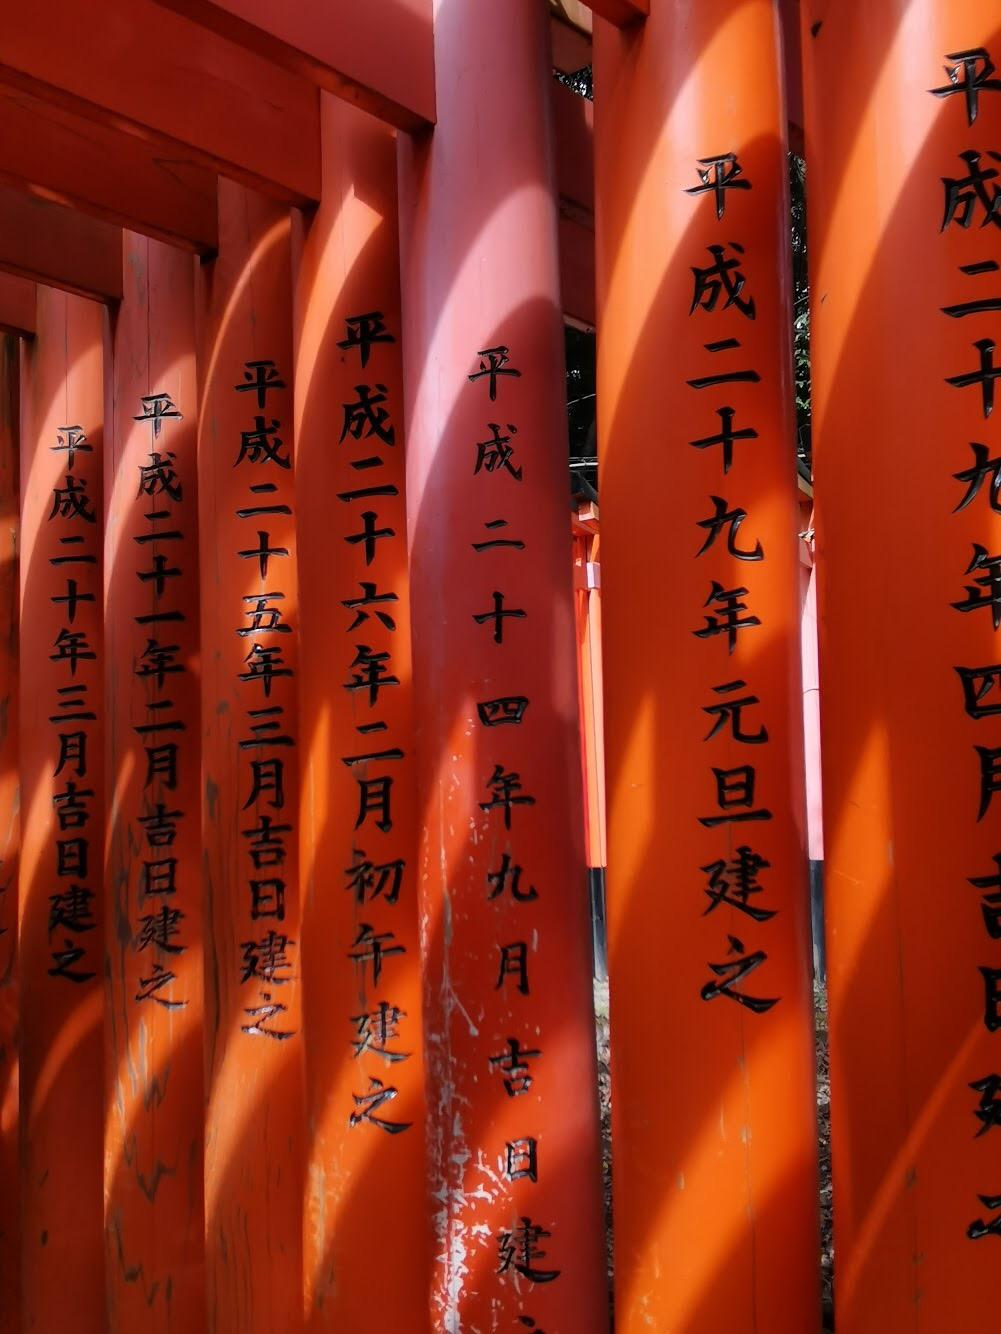 平成二十九年四月吉日建之
平成二十九年元旦建之
平成二十四年九月吉日建
平成二十六年二月初午建之
平成二十五年三月吉日建之
平成二十一年二月吉日建之
平成二十年三月吉日建之